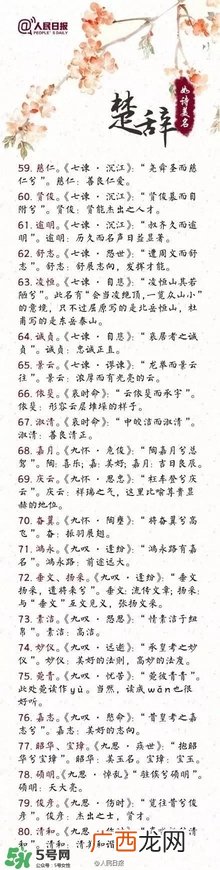 @人民日报
PEOPLE'S DAILY
如诗美名
楚辞
59. 慈仁。《七谏·沉江》：“尧舜圣而慈
仁兮”。慈仁：善良仁爱。
60. 贤俊。《七谏·沉江》：“贤俊慕而自
附兮”。贤俊：贤能杰出之人才。
61. 逾明。《七谏·沉江》：“叔齐久而逾
明”。逾明：历久而名声日益显著。
62. 舒志。《七谏·怨世》：“遭周文而舒
志”。舒志：舒展志向，发挥才能。
63. 凌恒。《七谏·自悲》：“凌恒山其若
陋兮”。此名有“会当凌绝顶，一览众山小”
的意境，只不过屈原写的是北岳恒山，杜
甫写的是东岳泰山。
64. 诚贞。《七谏·自悲》：“哀居者之诚
贞”。诚贞：忠诚正直。
65. 景云。《七谏·谬谏》：“龙举而景云
往”。景云：浓厚而有光亮的云。
66. 依斐。《哀时命》：“云依斐而承宇”。
依斐：形容云层堆垛的样子。
67. 淑清。《哀时命》：“中皎洁而淑清”。
淑清：善良清正。
68. 嘉月。《九怀·危俊》：“陶嘉月兮总
驾”。陶：喜乐；嘉：美好；嘉月：吉日良辰。
69. 庆云。《九怀·思忠》：“枉车登兮庆
云”。庆云：祥瑞之气，这里比喻算贵显
赫的地位。
70. 奋翼。《九怀·陶壅》：“将奋翼兮高
飞”。奋：振羽展翅。
71. 鸿永。《九叹·逢纷》：“鸿永路有嘉
名”。鸿永路：前途远大。
72. 垂文、扬采。《九叹·逢纷》：“垂文
扬采，遗将来兮”。垂文：流传文章；扬采：
与“垂文”互文见义，张扬文采。
73. 素洁。《九叹·怨思》：“情素洁于纽
帛”。素洁：高洁。
74. 妙仪。《九叹·远逝》：“承皇考之妙
仪”。妙仪：美好的法则，高妙的法度。
75. 菀青。《九叹·忧苦》：“菀彼青青”。
此处菀读作yù。当然，读成wǎn也很
好听。
76. 嘉志。《九叹·愍命》：“昔皇考之嘉
志兮”。嘉志：美好的志向。
77. 昭华、宝璋。《九思·疾世》：“抱昭华
兮宝璋”。昭华：美玉名。宝璋：玉器。
78. 硕明。《九思·悼乱》“驻俟兮硕明”。
硕明：天大亮。
79. 俊彦。《九思·伤时》：“览往昔兮俊
彦”。俊彦：杰出之士，贤才。
80. 清和。《九思·伤时》：
清和”。清和：清和
@人民日报
5号网
西龙网